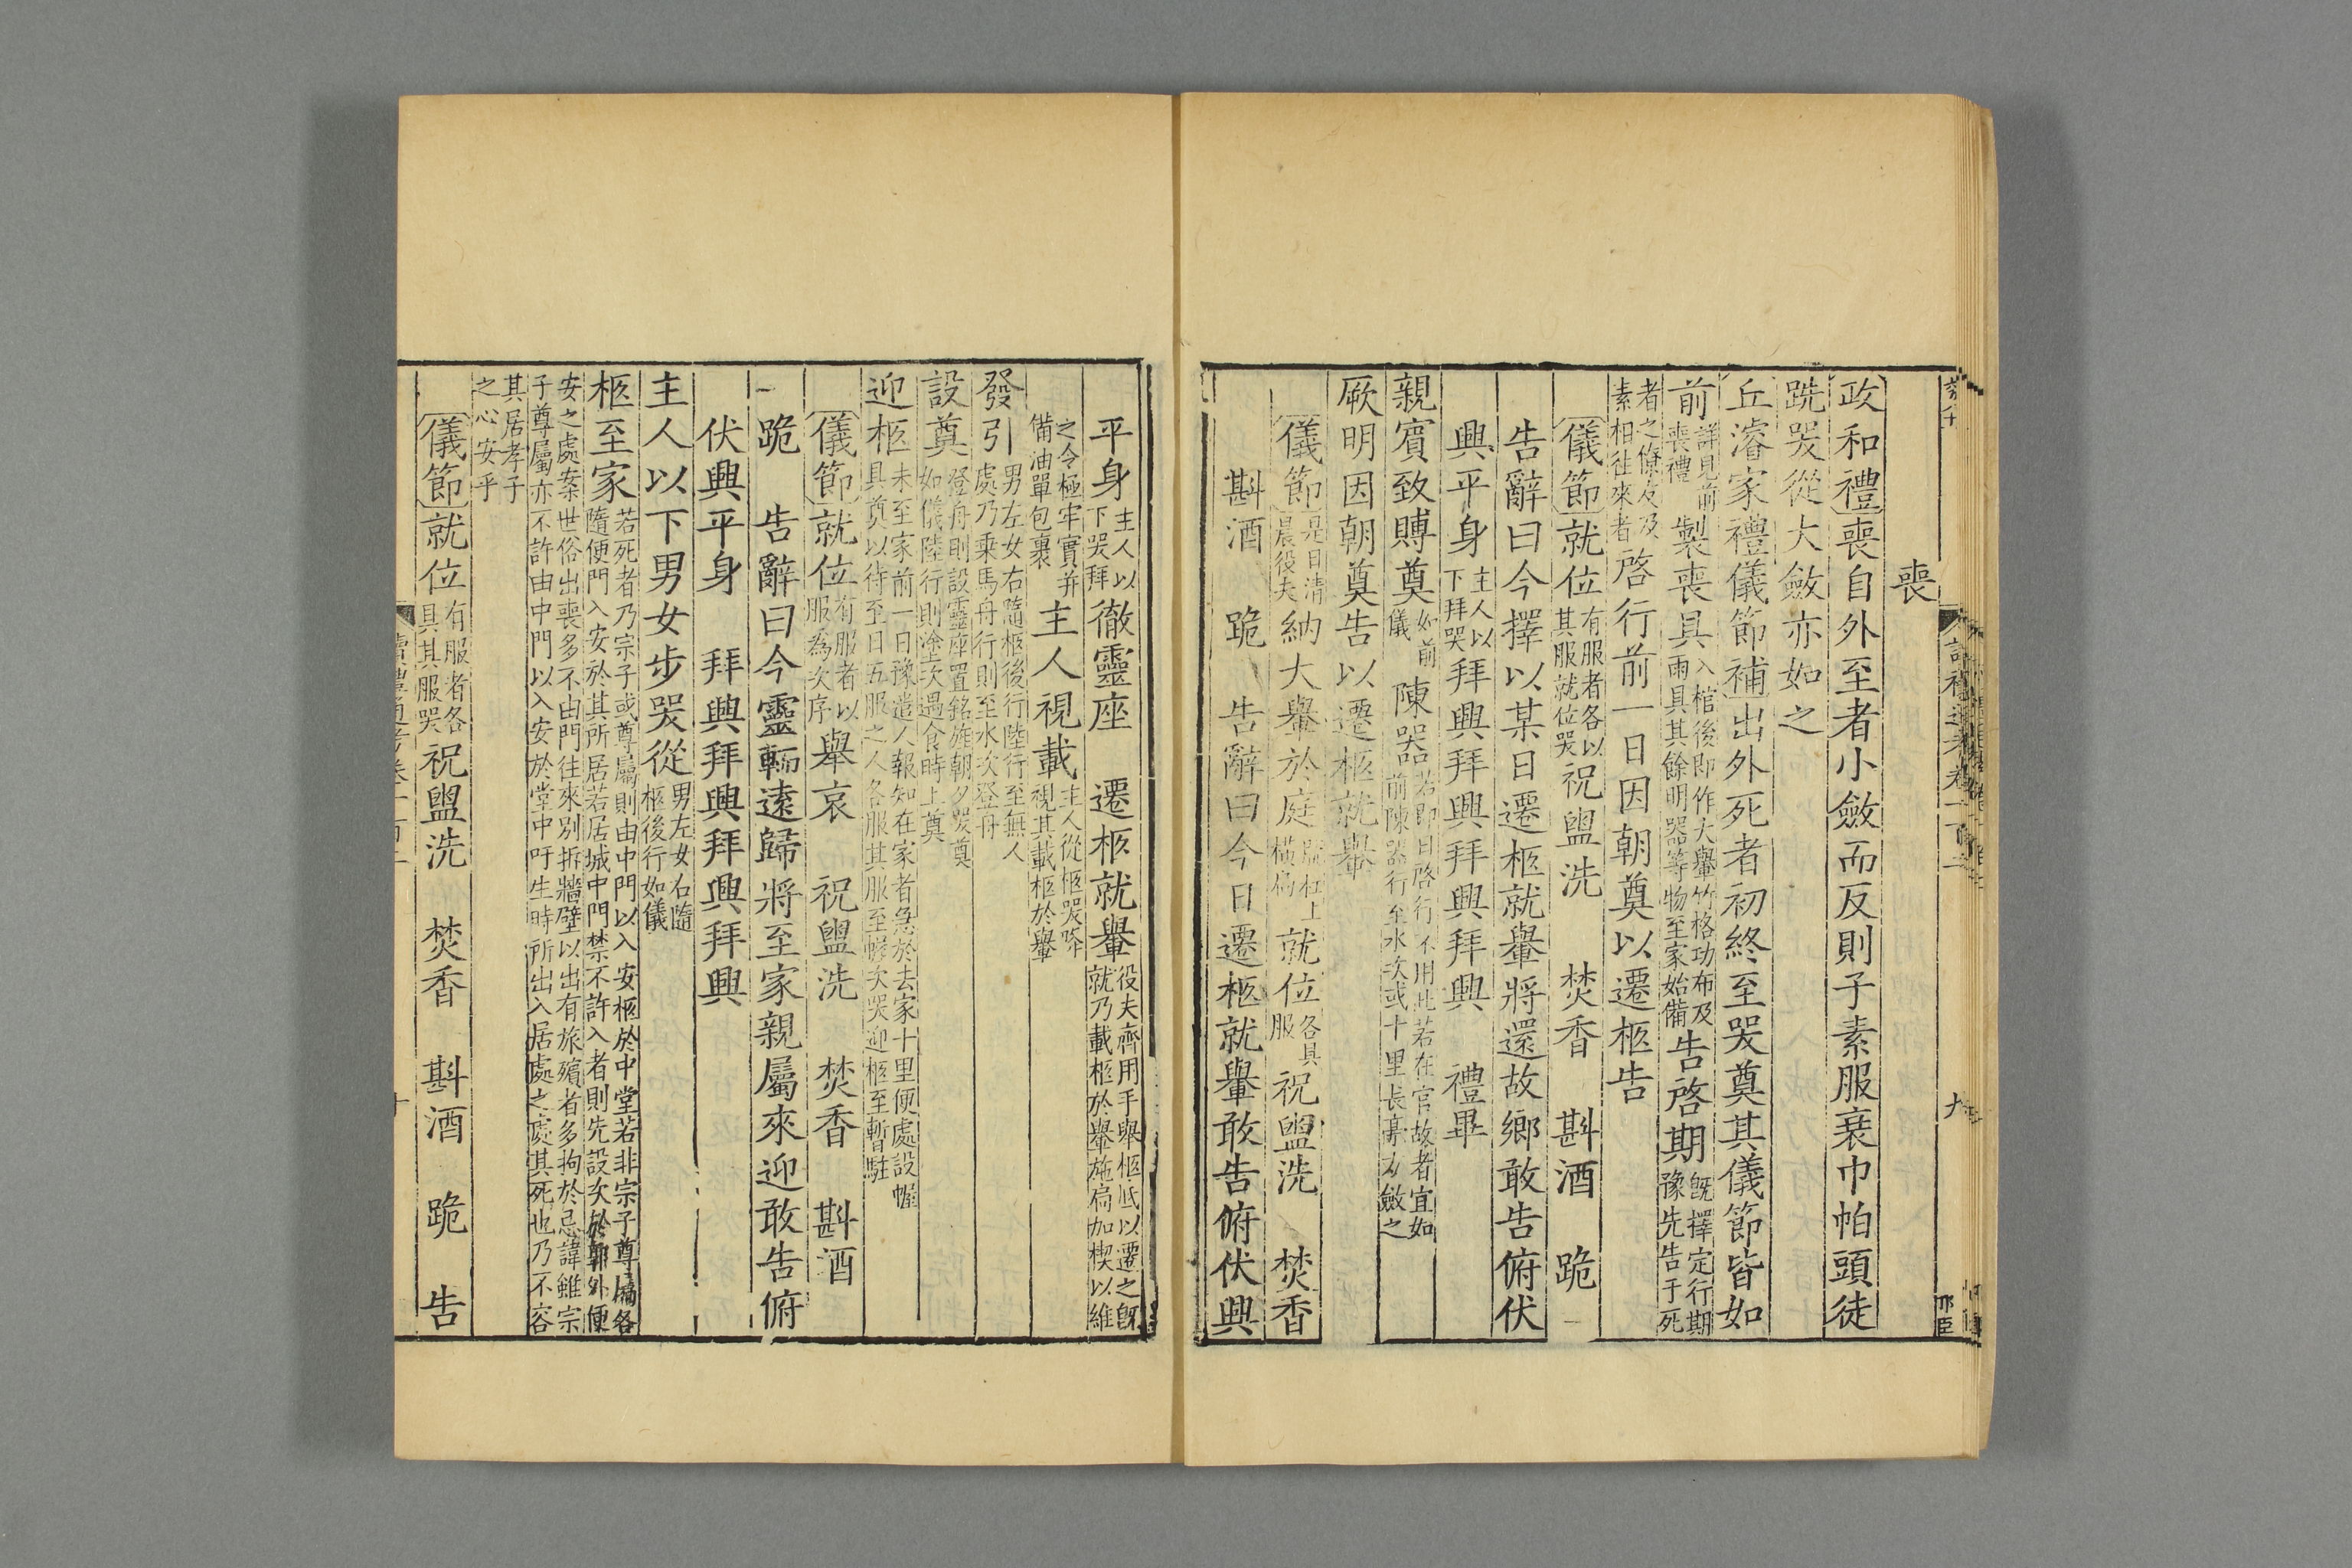 喪
政和禮喪自外至者小斂而反則子素服衰巾帕頭徒
跣哭從大斂亦如之
丘濬家禮儀節補出外死者初終至哭奠其儀節皆如
前詳見前喪禮製喪具入棺後即作大轝竹格功布及雨具其餘明器等物至家始備告啓期旣擇定行期豫先告于死
者之僚友及素相往來者啓行前一日因朝奠以遷柩告
儀節就位有服者各以其服就位哭祝盥洗 焚香 斟酒 跪
告辭曰今擇以某日遷柩就轝將還故鄉敢告俯伏
興平身主人以下拜哭拜興拜興拜興拜興 禮畢
親賓致賻奠如前儀陳器若即日啓行不用此若在官故者宜如前陳器行至水次或十里長亭方斂之
厥明因朝奠告以遷柩就轝
儀節是日清晨役夫納大轝於庭脫柱上橫扃就位各具服祝盥洗 焚香
斟酒 跪 告辭曰今日遷柩就轝敢告俯伏興
平身主人以下哭拜徹靈座 遷柩就轝役夫齊用手舉柩底以遷之旣就乃載柩於轝施扃加楔以維
之令極牢實并備油單包裹主人視載主人從柩哭降視其載柩於轝
發引男左女右隨柩後行陸行至無人處乃乗馬舟行則至水次登舟
設奠登舟則設靈座置銘旌朝夕哭奠如儀陸行則塗次遇食時上奠
迎柩未至家前一日豫遣人報知在家者急於去家十里便處設幄具奠以待至日五服之人各服其服至幄次哭迎柩至暫駐
儀節就位有服者以服爲次序舉哀 祝盥洗 焚香 斟酒
跪 告辭曰今靈輀遠歸將至家親屬來迎敢告俯
伏興平身 拜興拜興拜興拜興
主人以下男女步哭從男左女右隨柩後行如儀
柩至家若死者乃宗子或尊屬則由中門以入安柩於中堂若非宗子尊屬各隨便門入安於其所居若居城中門禁不許入者則先設次於郭外便
安之處案世俗出喪多不由門往來別拆牆壁以出有旅殯者多拘於忌諱雖宗子尊屬亦不許由中門以入安於堂中吁生時所出入居處之處其死也乃不容
其居孝子之心安乎
儀節就位有服者各具其服哭祝盥洗 焚香 斟酒 跪 告